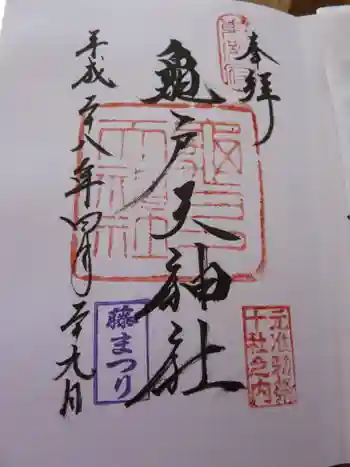 奉拝
亀戸天神社
元准勅祭
十社之内
藤まつり
平成二十八年四月二十九日